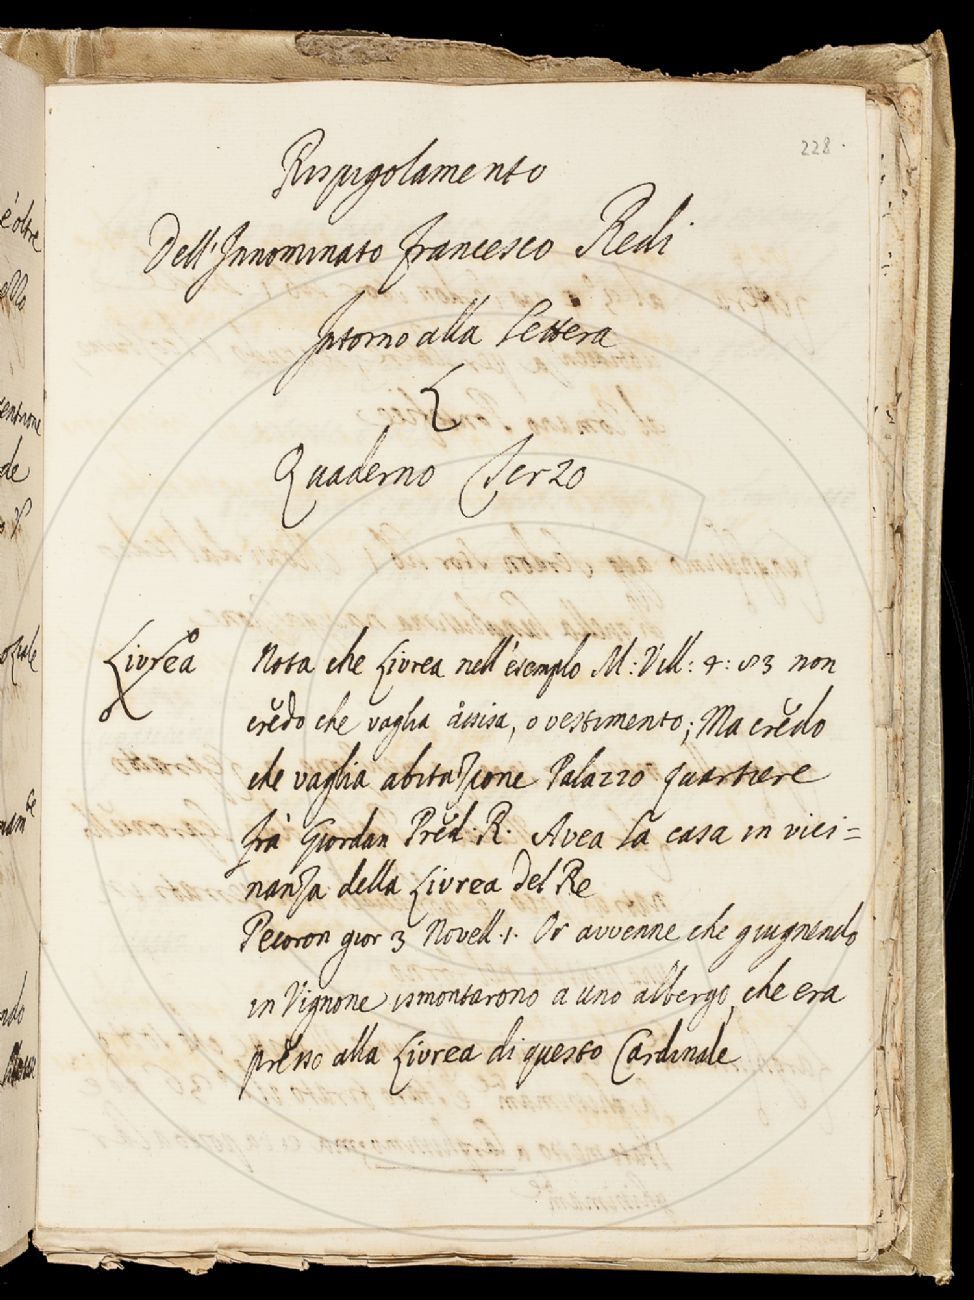 228.
Rispigolamento
Dell'Innominato Francesco Redi
Intorno alla Lettera
L
Quaderno Terzo
Livrea
Nota che Livrea nell'esemplo M: Vill: 4: 83 non
credo che vaglia assisa, o vestimento; Ma credo
che vaglia abitazione Palazzo quartiere
Frà Giordan Pred. R. Avea la casa in vici=
nanza della Livrea del Re
Pecoron gior 3 Novell. 1. Or avvenne che giugnendo
in Vignone ismontarono a uno albergo, che era
presso alla Livrea di questo Cardinale
è oltre
de